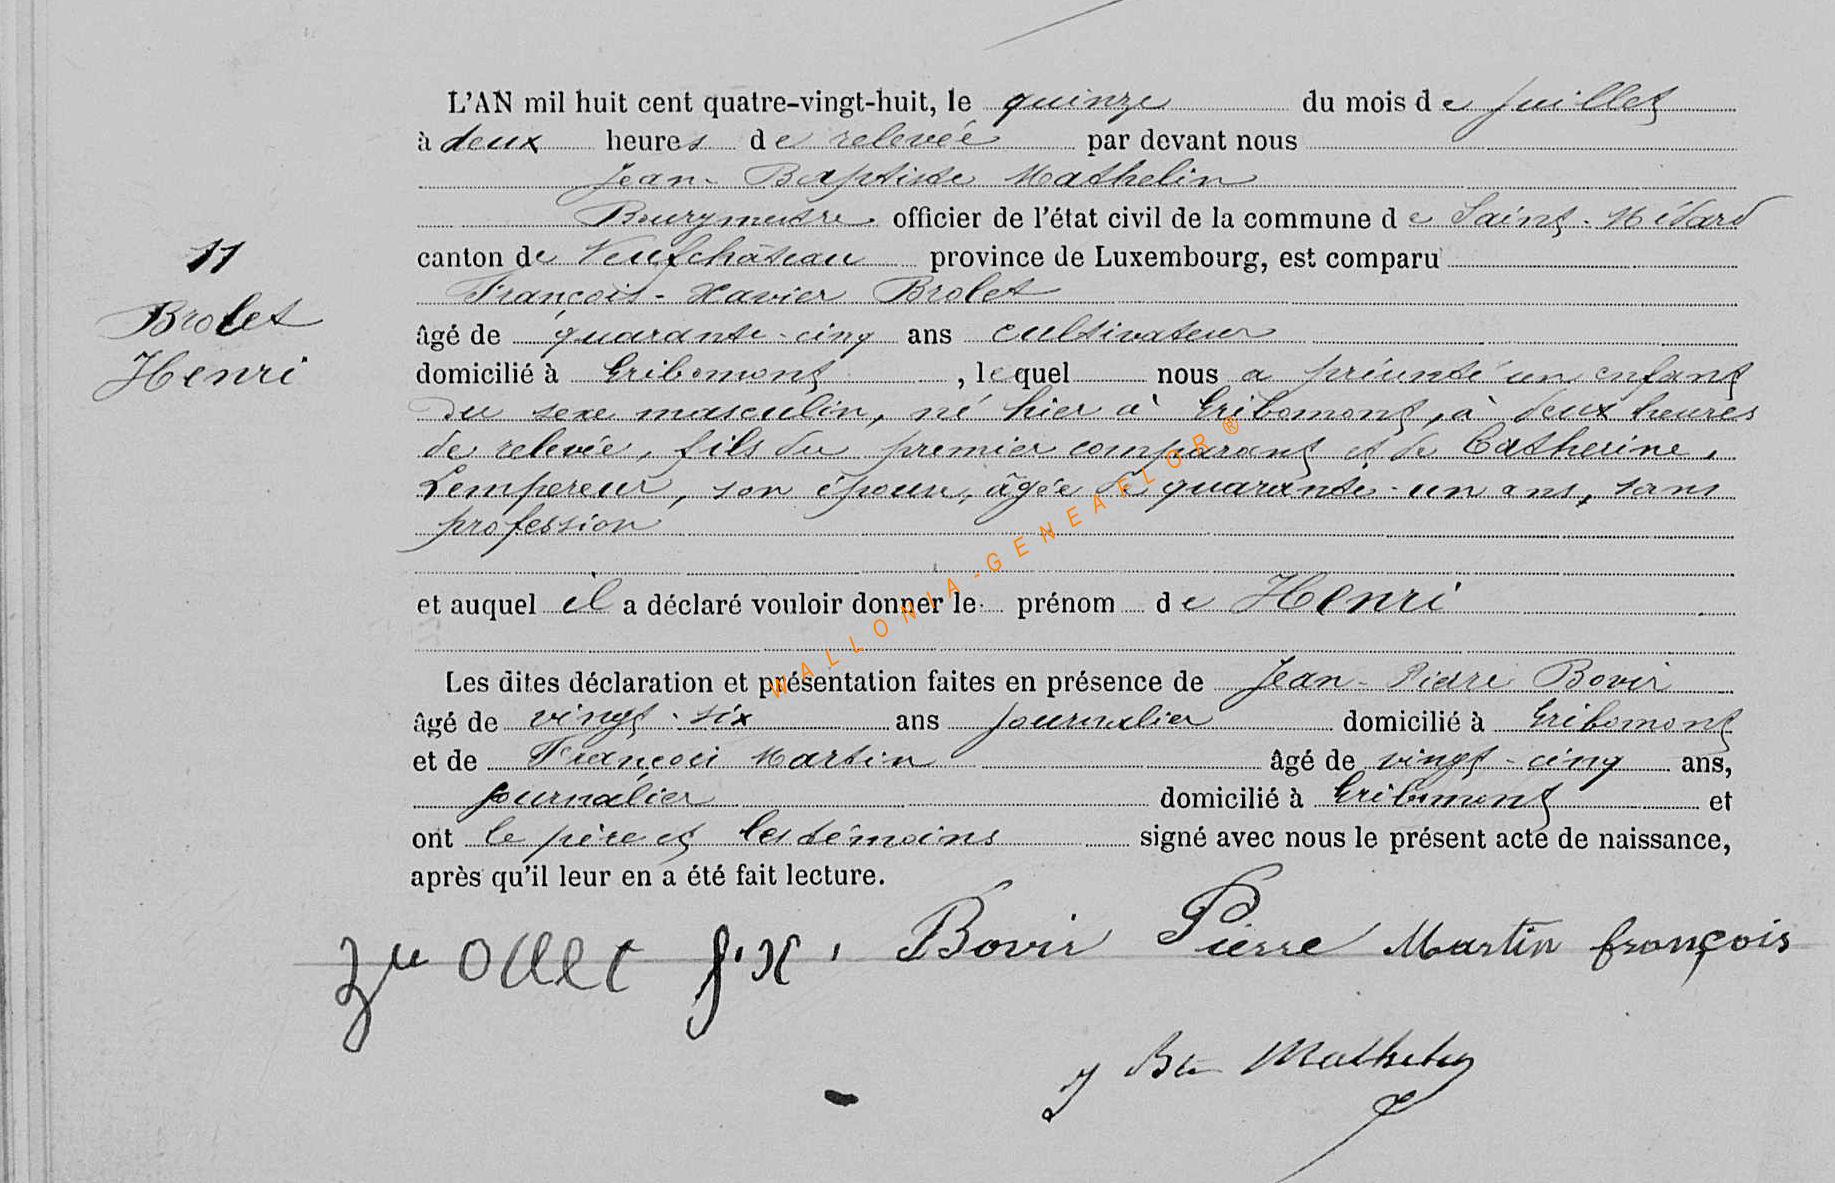 L'AN mil huit cent quatre-vingt-huit, le quinze du mois de juillet
à deux heures de relevée par devant nous
Jean-Baptiste Mathelin
Bourgmestre officier de l'état civil de la commune de Saint-Médard
11
canton de Neufchâteau province de Luxembourg, est comparu
François-Xavier Brolet
Brolet
âgé de quarante-cinq ans cultivateur
Henri
domicilié à Gribomont, lequel nous a présenté un enfant
du sexe masculin, né hier à Gribomont, à deux heures
de relevée, fils du premier comparant et de Catherine,
Lempereur, son épouse, âgée de quarante-un ans, sans
profession
et auquel il a déclaré vouloir donner le prénom de Henri
Les dites déclaration et présentation faites en présence de Jean-Pierre Bovir
âgé de vingt-six ans journalier domicilié à Gribomont
et de François Martin âgé de vingt-cinq ans,
journalier domicilié à Gribomont et
ont le père et les témoins signé avec nous le présent acte de naissance,
après qu'il leur en a été fait lecture.
f.x. Bovir Pierre Martin françois
J Bte Mathelin
WALLONIA-GENEAFLOR®